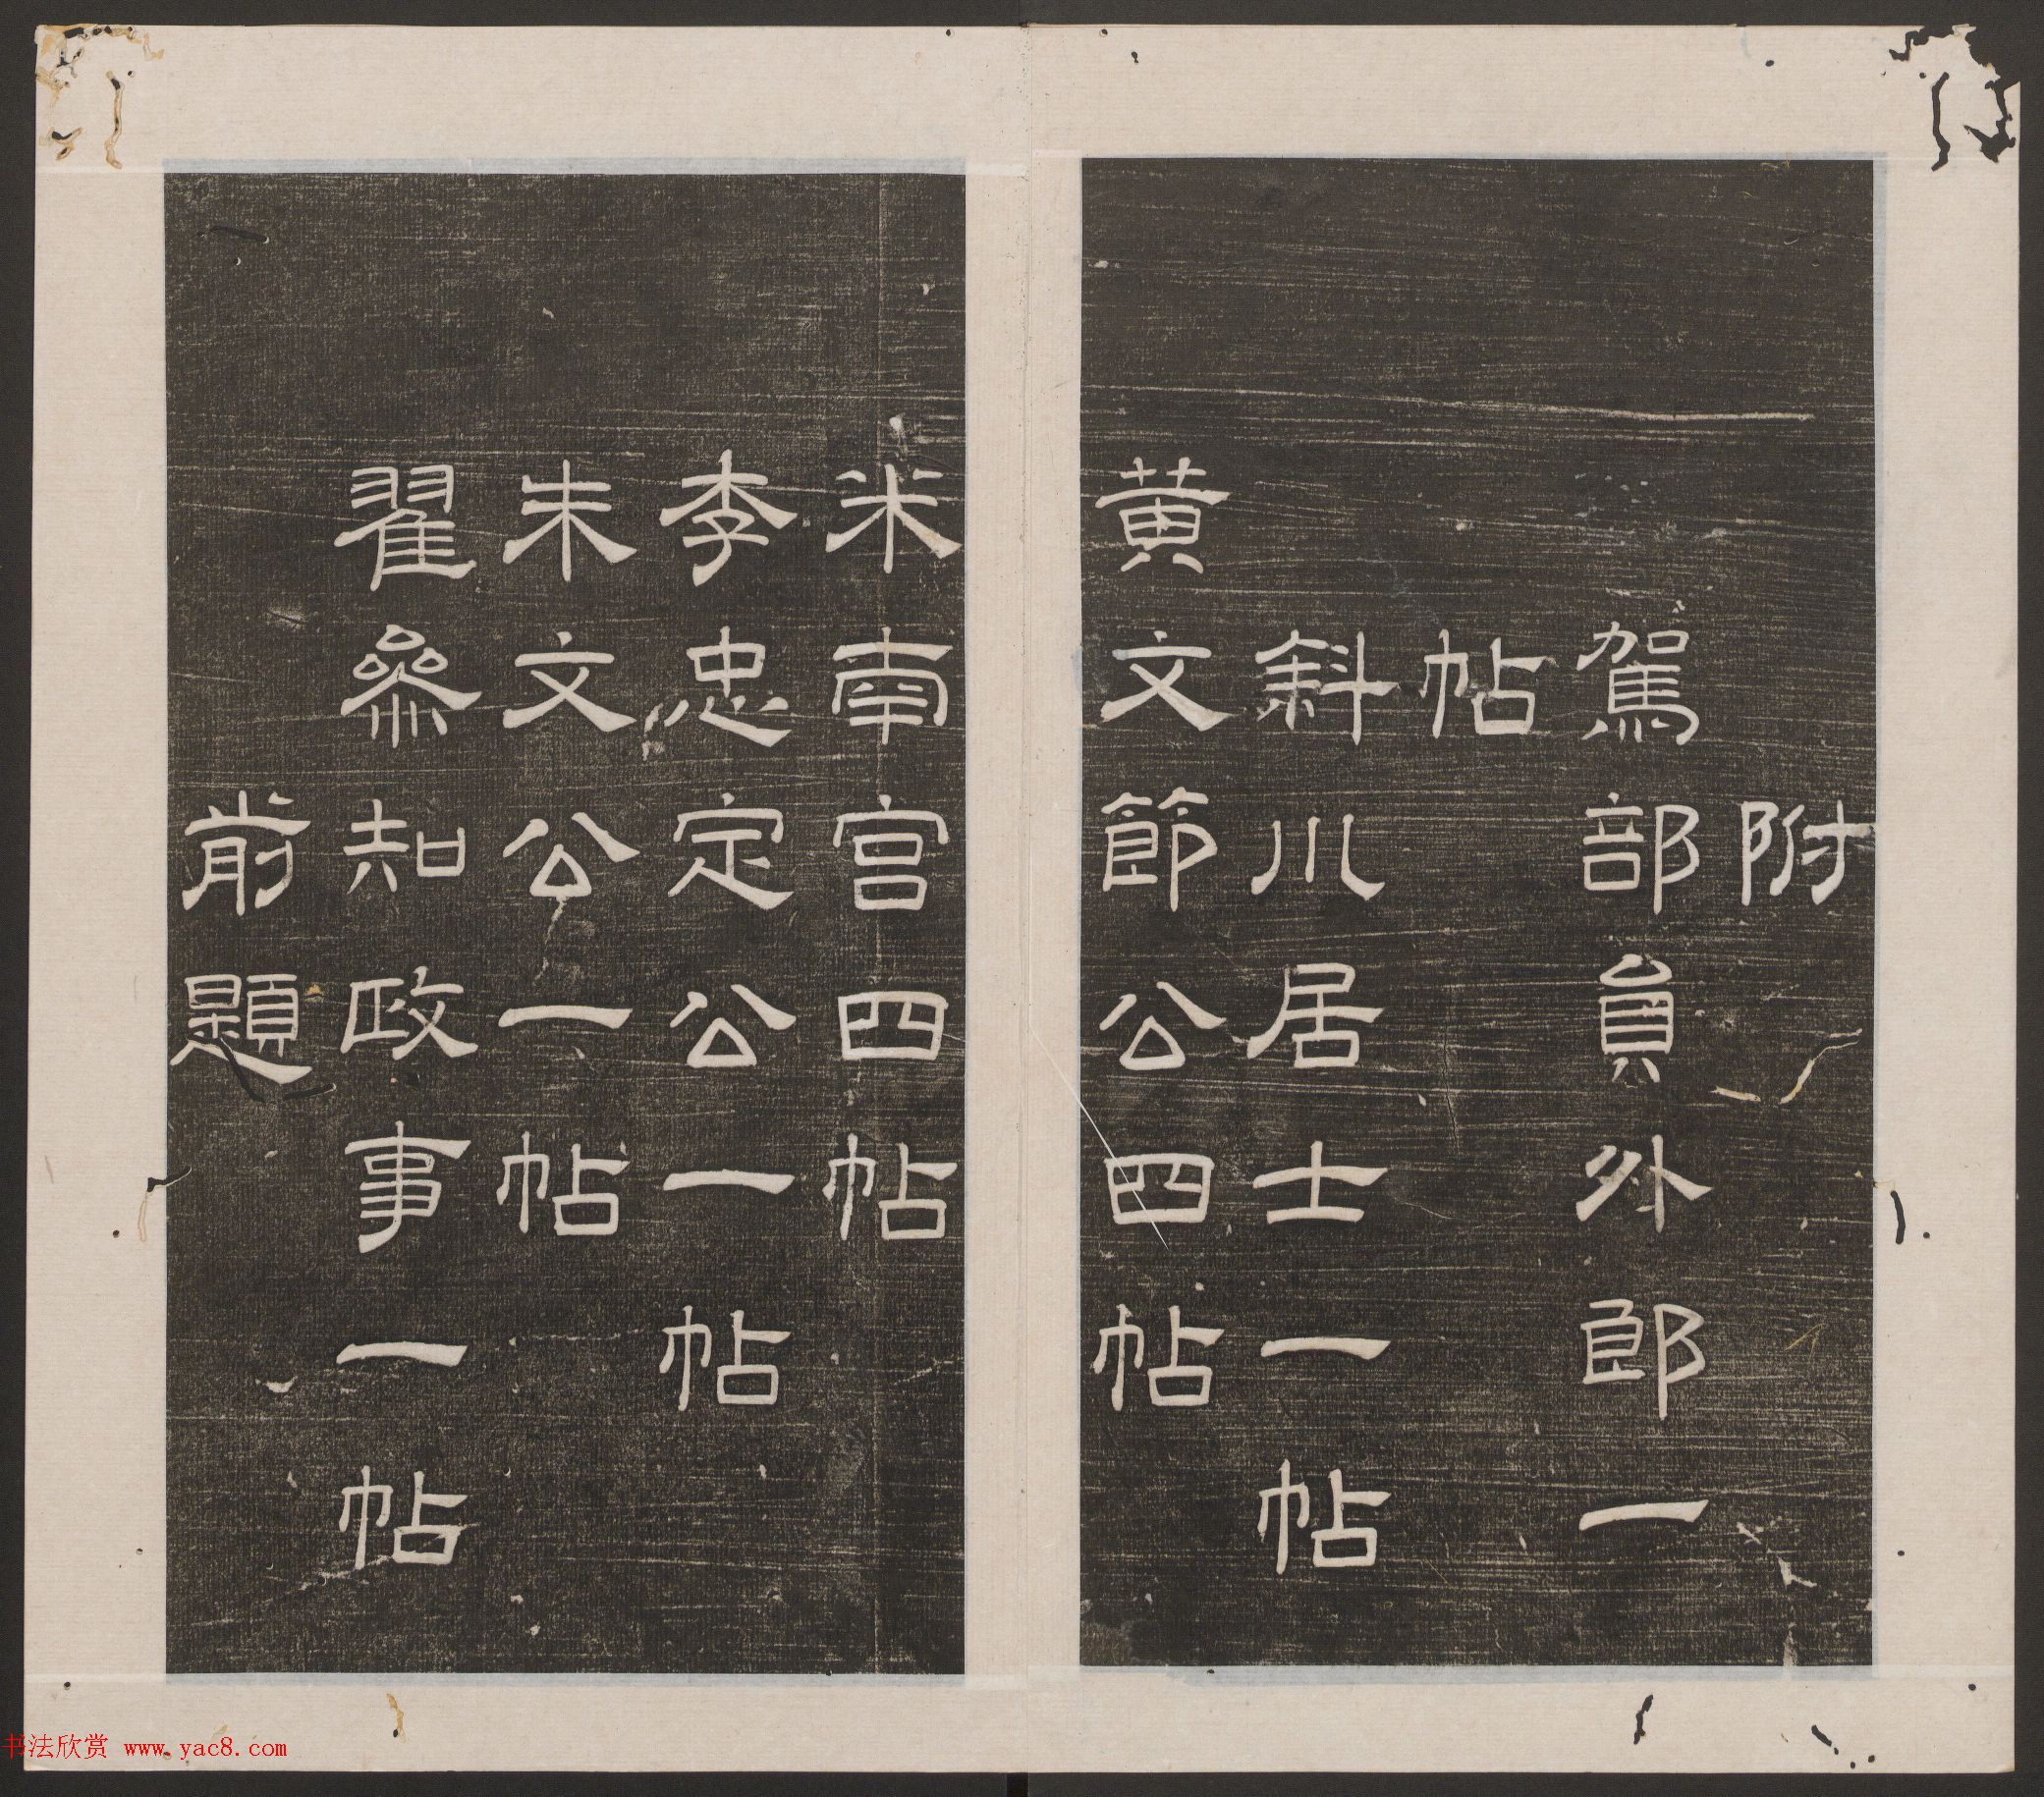 附
駕部員外郎一
帖
斜川居士一帖
黄文節公四帖
米南宫四帖
李忠定公一帖
朱文公一帖
翟叅知政事一帖
前題
书法欣赏 www.yac8.com